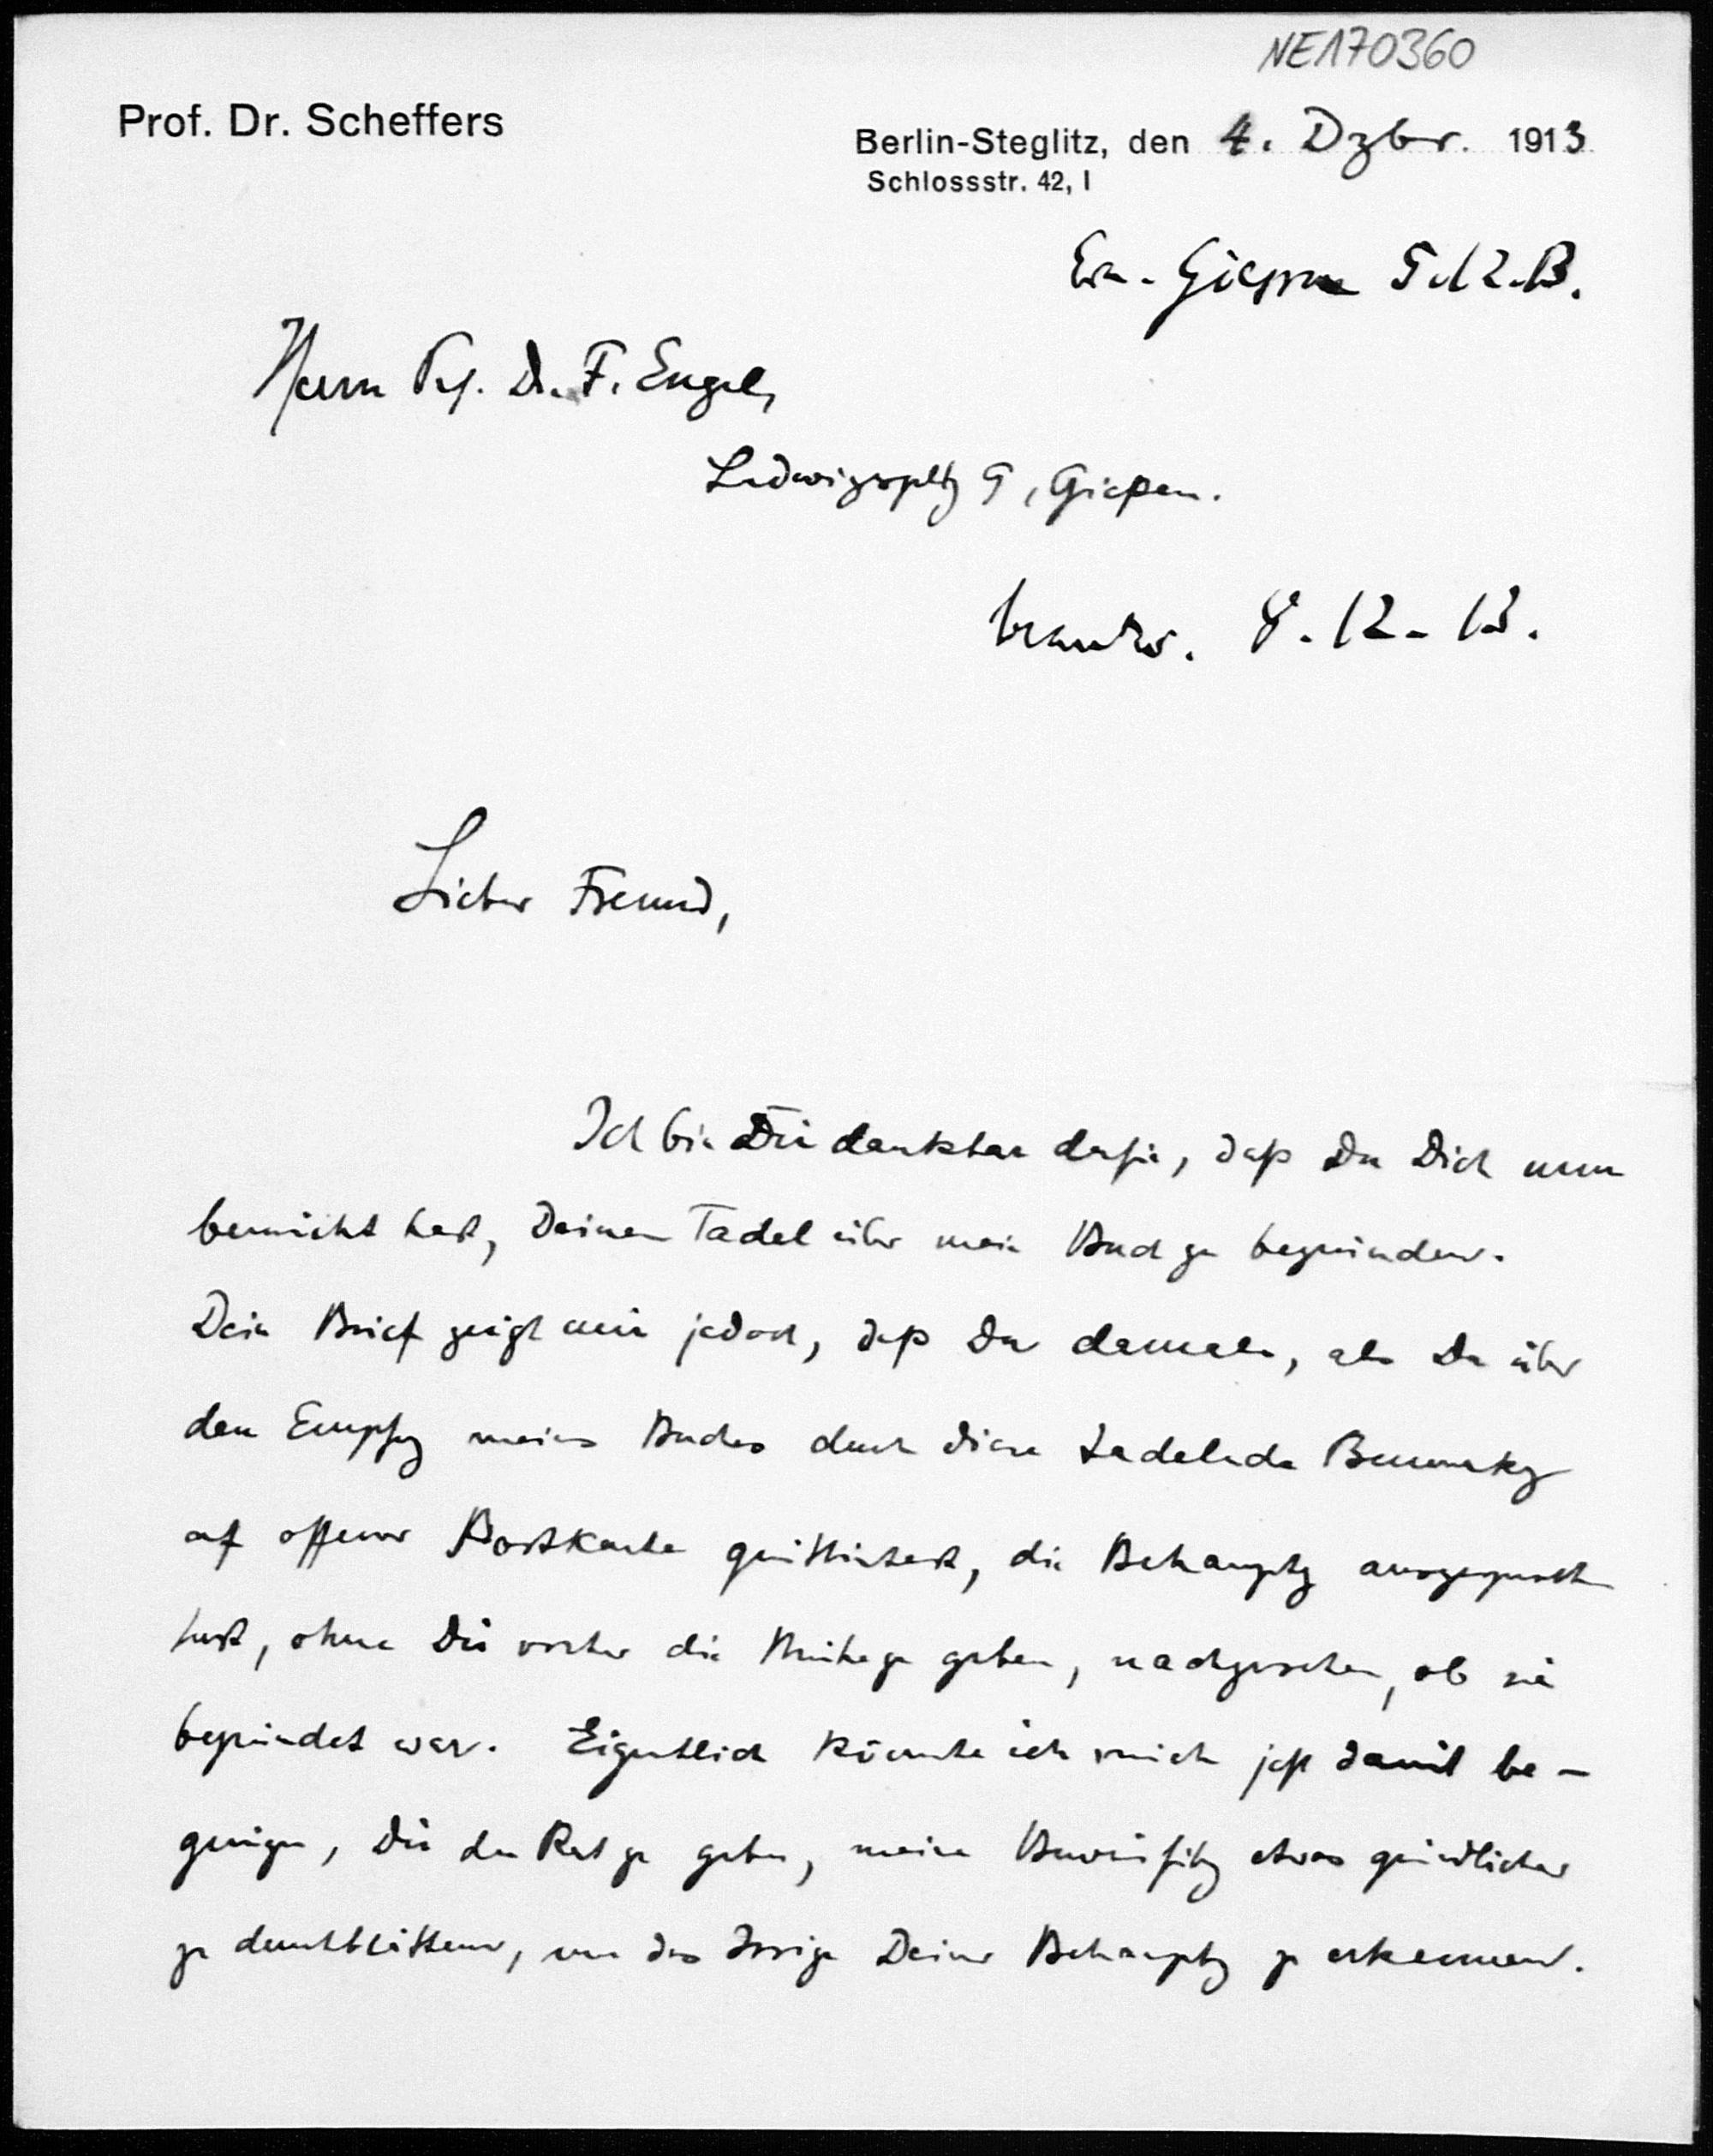 NE170360
Prof. Dr. Scheffers
Berlin-Steglitz, den 4. Dzbr. 1913
Schlossstr. 42, I
Giessen 5.12.13.
Herrn Prf. Dr. F. Engel,
Ludwigspltz 9, Gießen.
beantw. 8.12.13.
Lieber Freund,
Ich bin Dir dankbar dafür, daß Du Dich nun
bemüht hast, Deinen Tadel über mein Buch zu begründen.
Dein Brief zeigt mir jedoch, daß Du damals, als Du über
den Empfg meines Buches durch diese tadelnde Bemerkg
auf offener Postkarte quittiertest, die Behauptg ausgesprochen
hast, ohne Dir vorher die Mühe zu geben, nachzusehen, ob sie
begründet war. Eigentlich könnte ich mich jetzt damit be-
gnügen, Dir den Rat zu geben, meine Beweisführg etwas gründlicher
zu durchblättern, um das Irrige Deiner Behauptg zu erkennen.